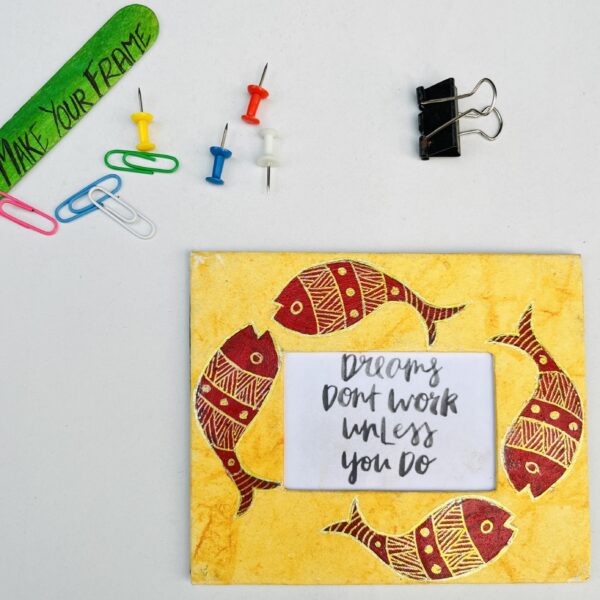 Make Your Frame
Dreams
Dont Work
Unless
You Do